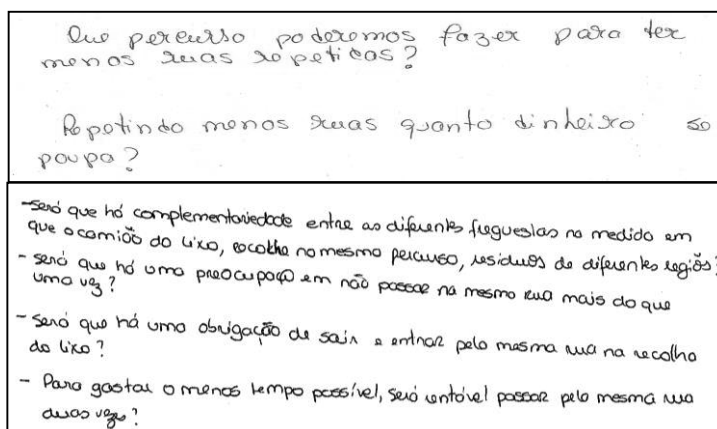 Que percurso poderemos fazer para ter
menos ruas repetidas?
Repetindo menos ruas quanto dinheiro se
poupa?
-Será que há complementariedade entre as diferentes freguesias na medida em
que o camião do lixo, recolhe no mesmo percurso, resíduos de diferentes regiões?
- Será que há uma preocupação em não passar na mesma rua mais do que
uma vez?
- Será que há uma obrigação de sair e entrar pela mesma rua na recolha
do lixo?
- Para gastar o menos tempo possível, será rentável passar pela mesma rua
duas vezes?